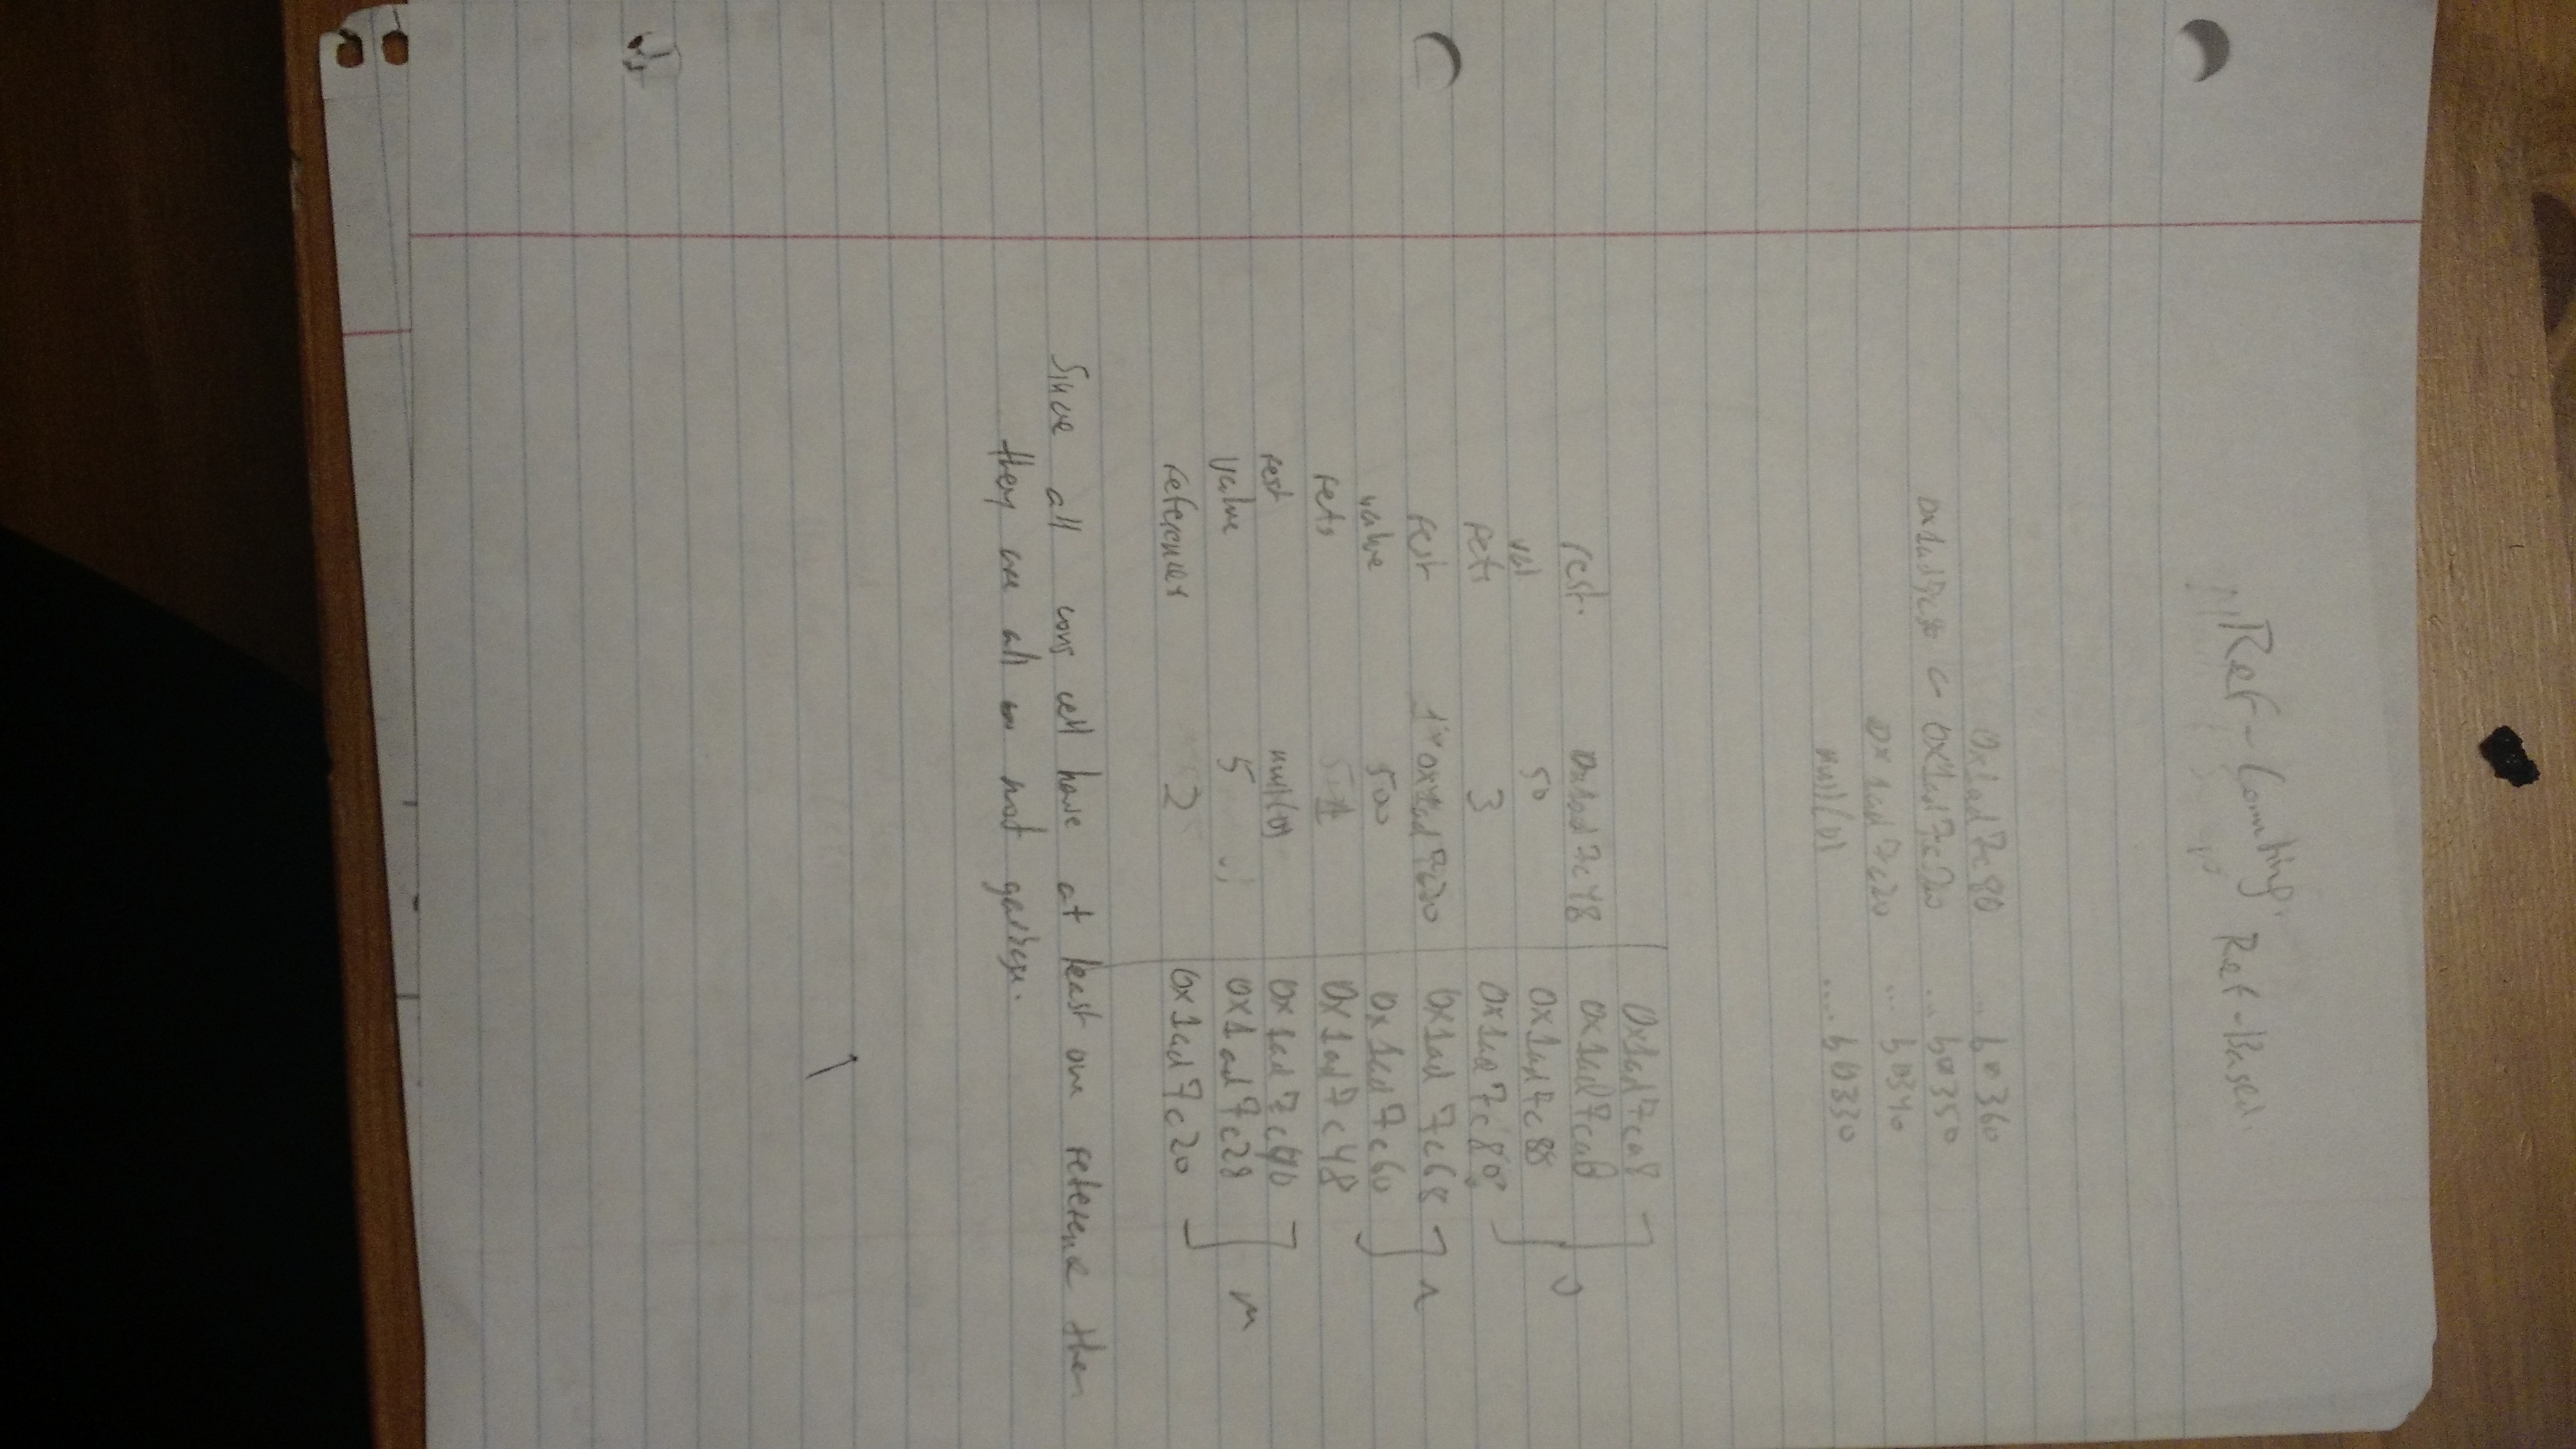 Ref-Counting: Ref-Based.
0x1ad7c80 .. b0360
0x1ad7c20 .. b0350
0x1ad7c20 ... b0340
null(0) .... b0330
0x1ad7ca8
rest. 0x1ad7c48 0x1ad7ca0
val 50 0x1ad7c88
refs 3 0x1ad7c80
rest 0x1ad7c20 0x1ad7c68
value 500 0x1ad7c60
refs 1 0x1ad7c48
rest null(0) 0x1ad7c40
value 5 0x1ad7c28
references 2 0x1ad7c20
Since all cons cell have at least one reference then
they are all not garbage.